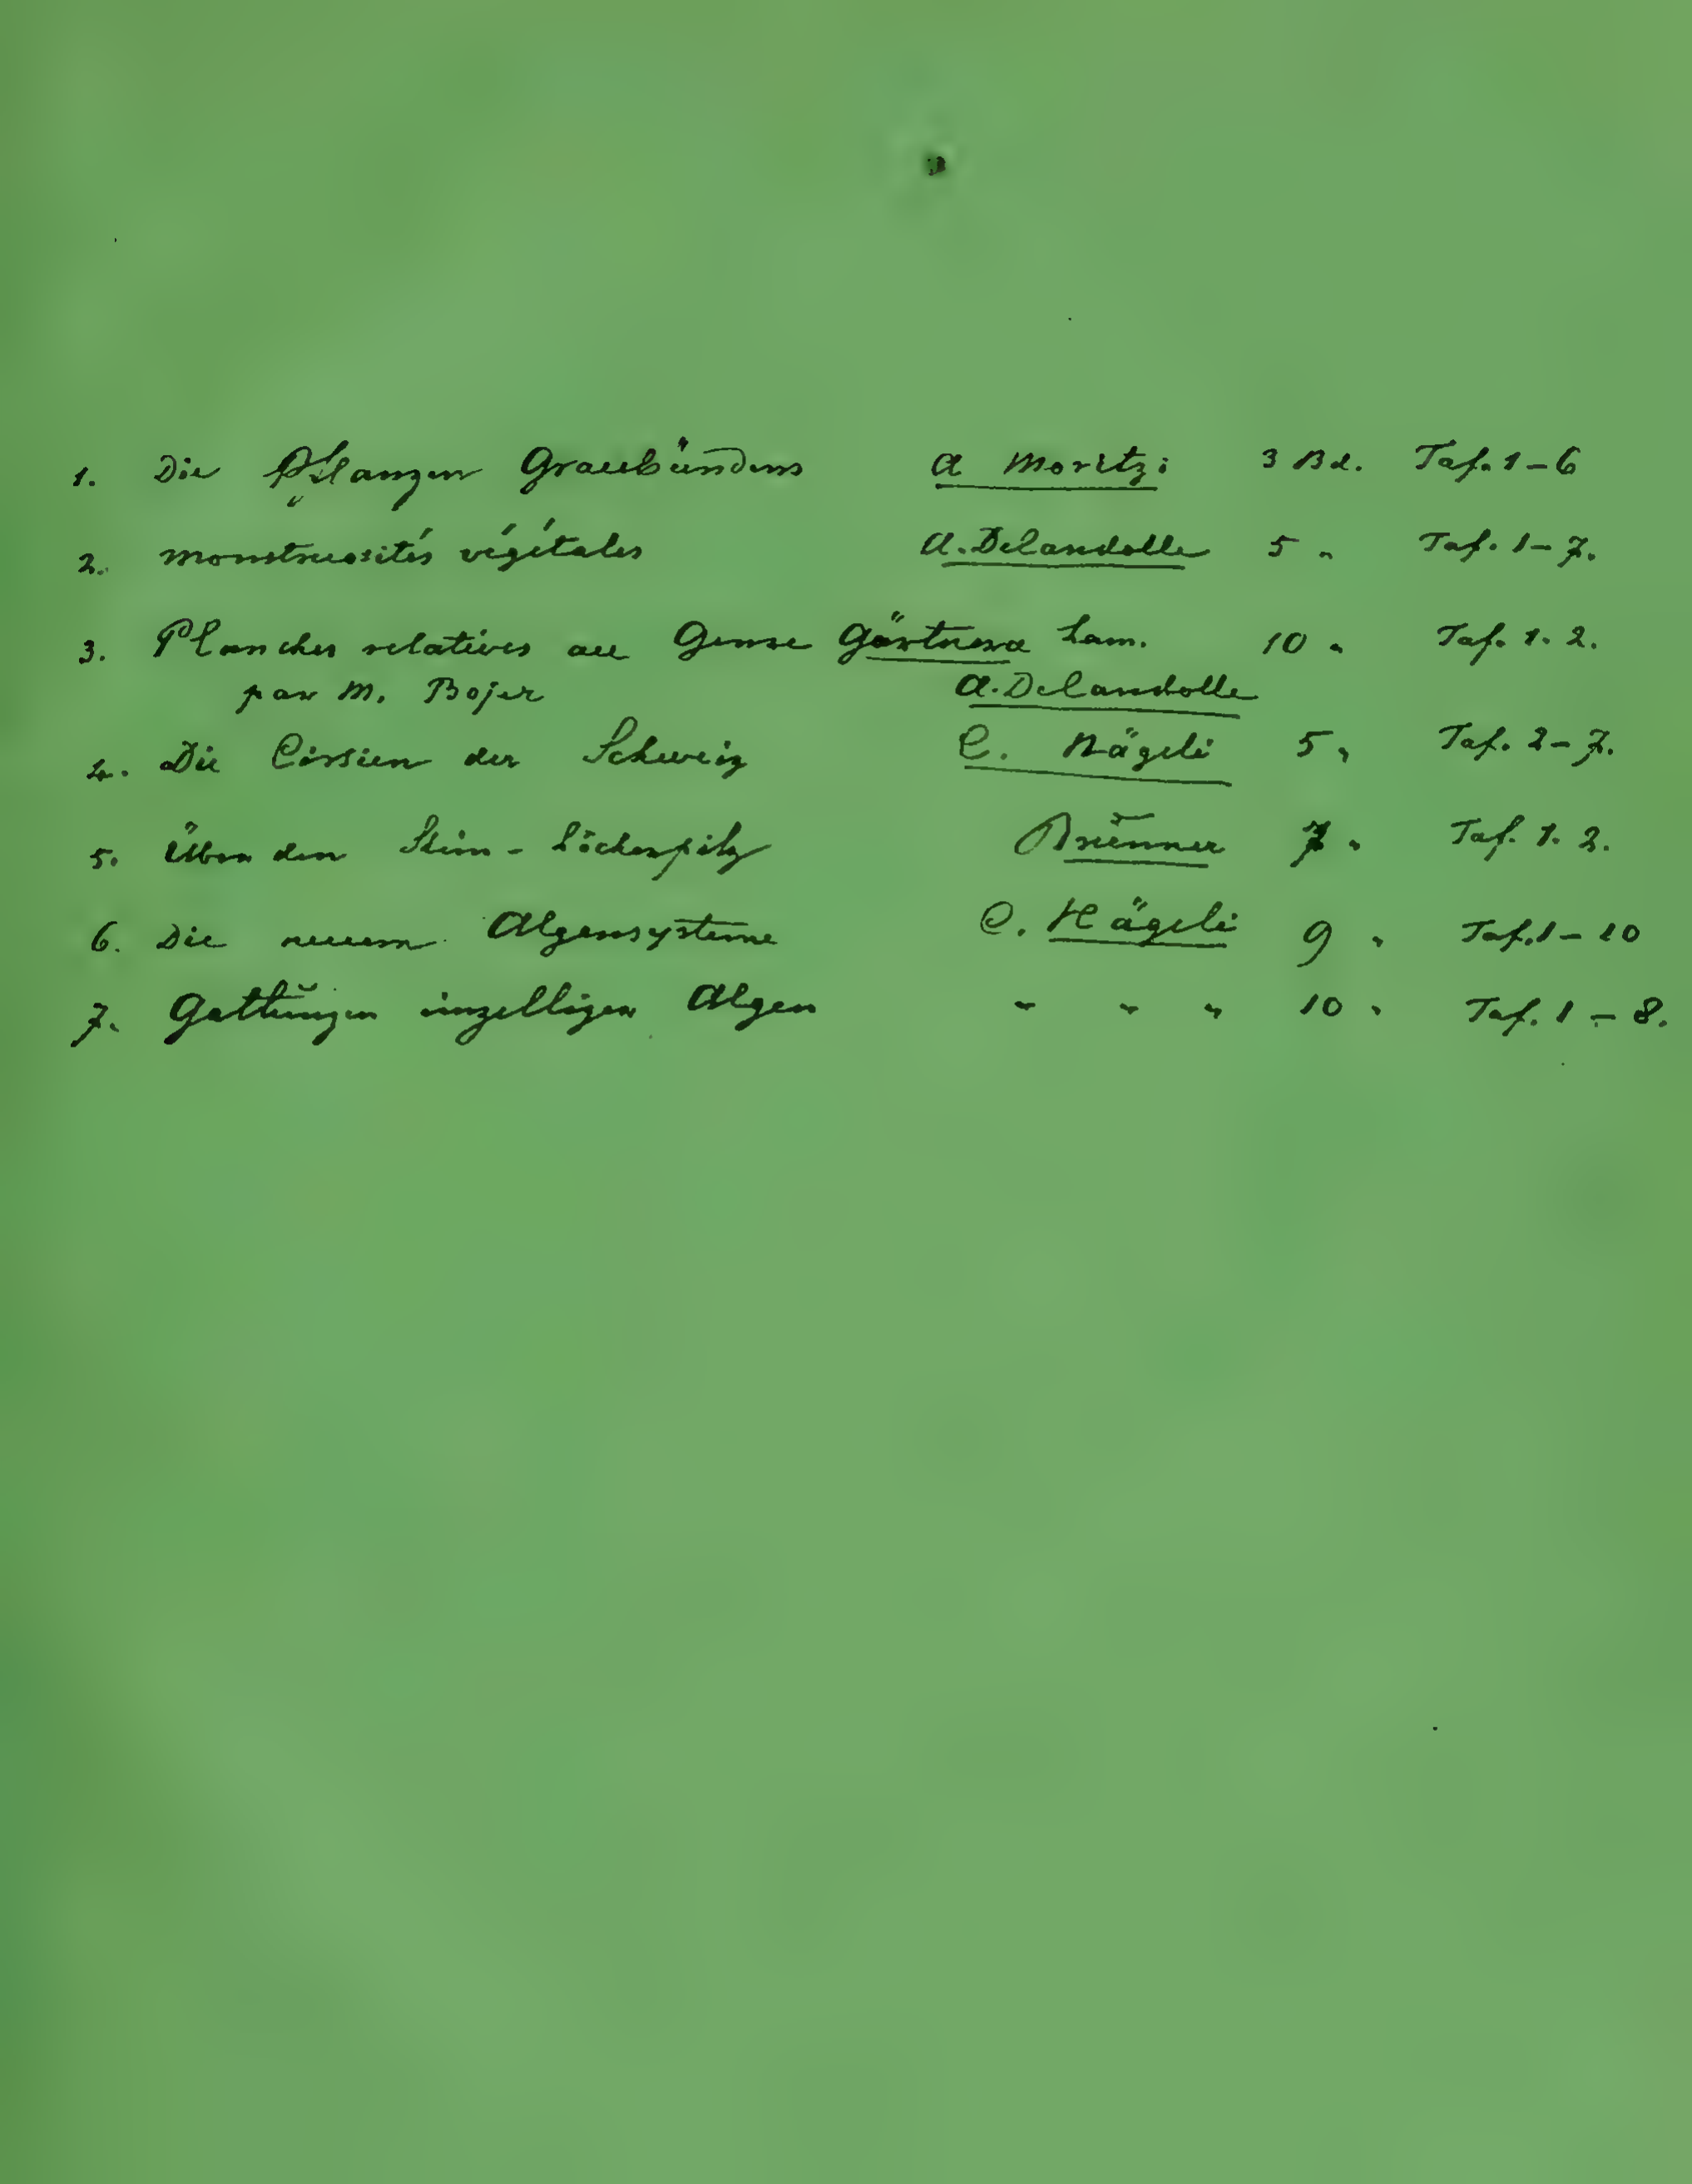 1. Die Pflanzen Graubündens A Moritzi 3 Bd. Taf. 1-6
2. Monstruosités végétales A. Delandolle 5 " Taf. 1-7.
3. Planches relatives au Genre Gärtnera Lam. 10 " Taf. 1. 2.
par M. Bojer A. Delandolle
4. Die Cirsien der Schweiz C. Nägeli 5 " Taf. 2-7.
5. Über den Stein-Löcherpilz Brunner 7 " Taf. 1. 2.
6. Die neuern Algensysteme C. Nägeli 9 " Taf. 1-10
7. Gattungen einzelliger Algen " " " 10 " Taf. 1-8.